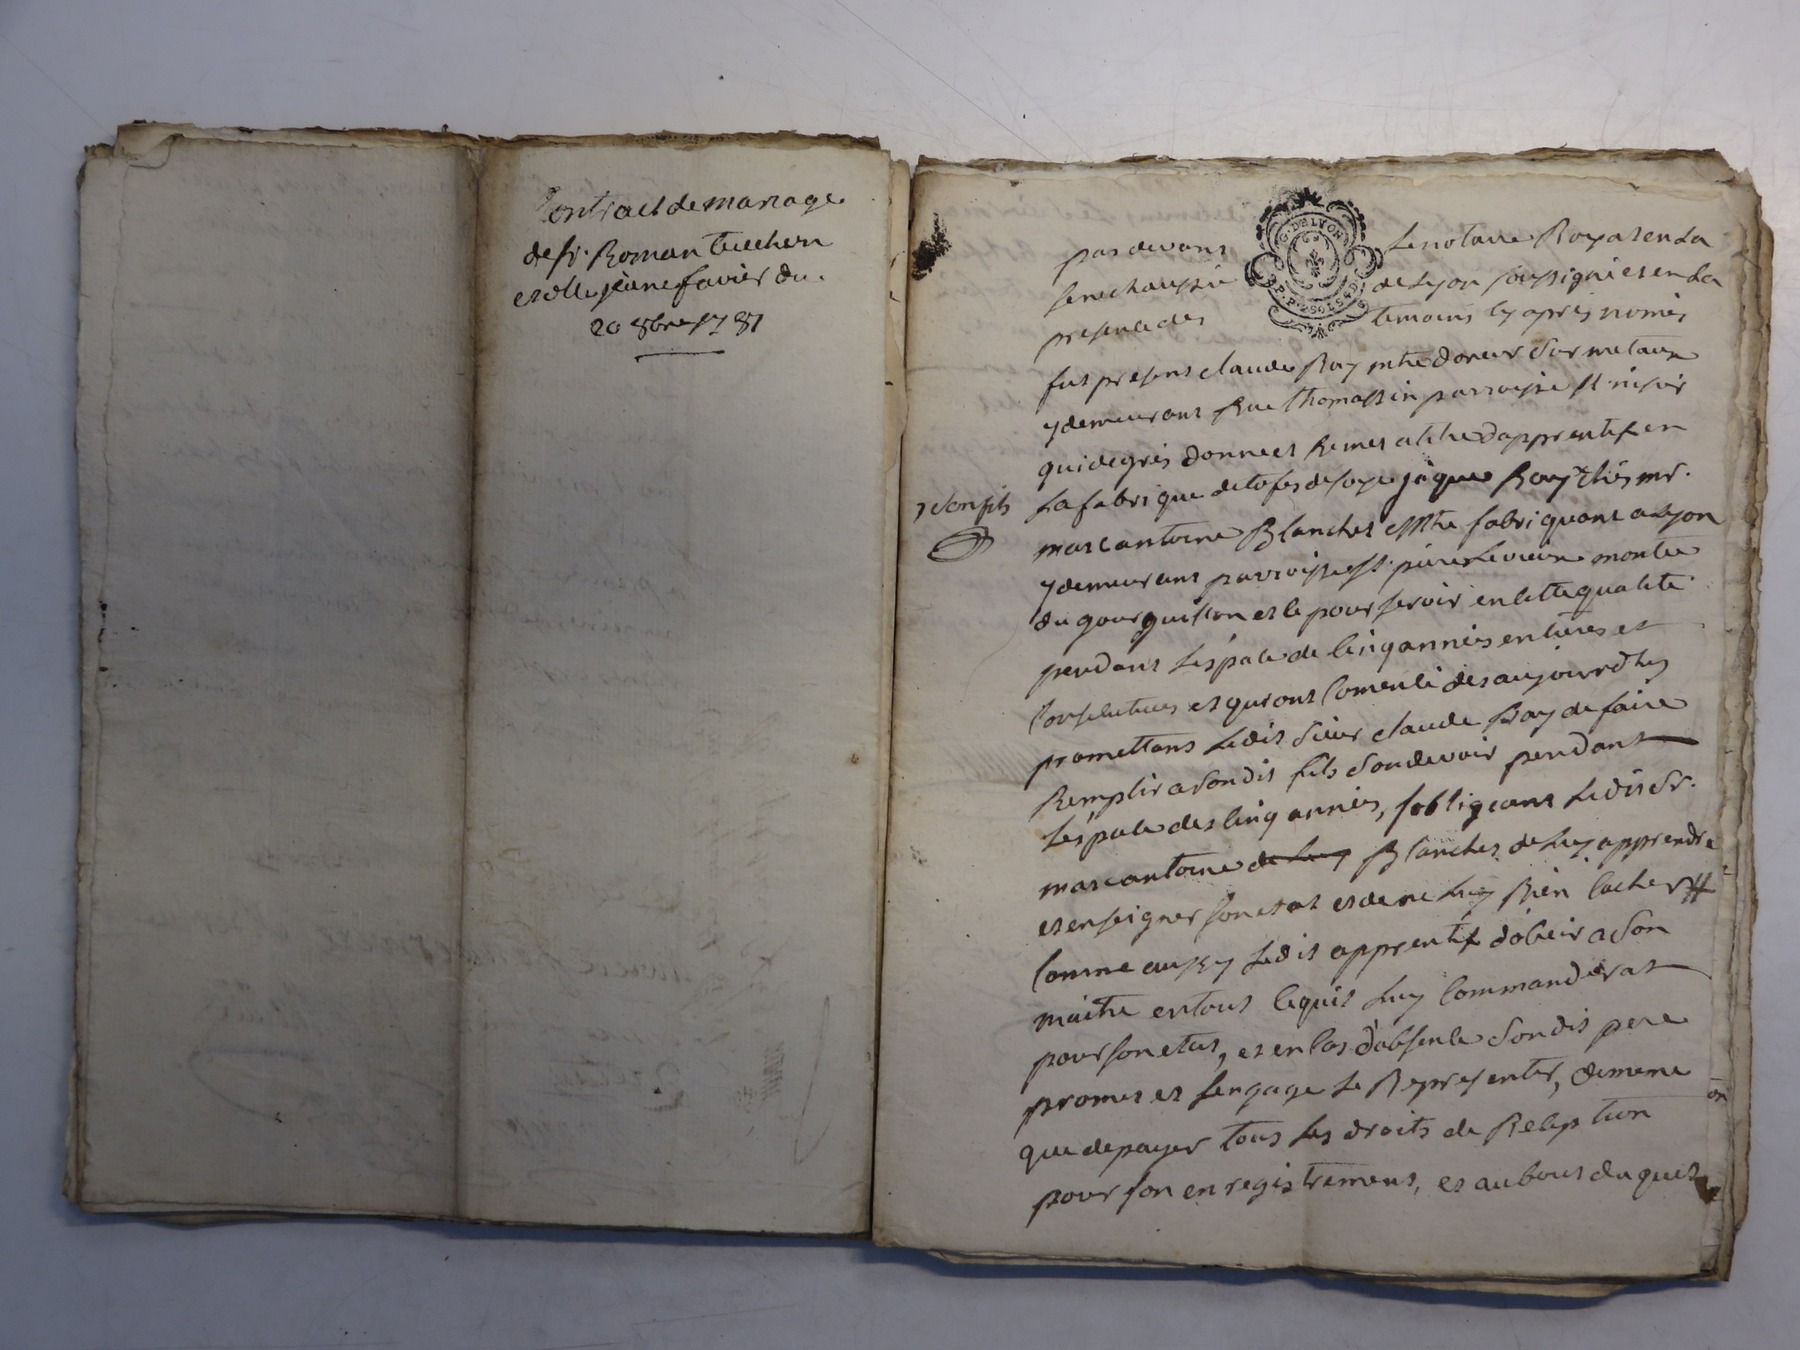 Contract de mariage
de sr. Roman tuechern
et dlle jeane favier du.
20 8bre 1781
G. DE LYON
P.P. 2 SOLS 4 D
par devant Le notaire Royal en La
senechaussée de Lyon soussigné et en La
presence des temoins cy après només
fut present claude Ray mtre doreur Sur metaux
y demeurant Rue thomassin parroisse st nisier
qui de gres donne et Remet a titre d'apprentif en
La fabrique detofes de soye jâque Ray chés mr.
son fils
marc antoine Blanchet Mtre fabriquant a Lyon
y demeurant parroisse st. pierre Le vieux montée
du gourguillon et le pour servoir en cette qualité
pendant L'éspace de cinq annéés entieres et
consecutives et qui ont comencé dès aujourd'huy
promettant Ledit Sieur claude Ray de faire
Remplir a Son dit fils Son devoir pendant
L'éspace des cinq annéés, s'obligeant Ledit Sr.
marc antoine de Luy Blanchet de Luy apprendre
et enseigner son etat et de ne Luy Rien cacher #
comme aussy Ledit apprentif d'obéir a Son
maitre en tout ce qu'il Luy commanderat
pour son etat, et en cas d'absence Son dit pere
promet et s'engage Le Representer, de meme
que de payer tous Les droits de Reception
pour son enregistrement, et au bout du quel